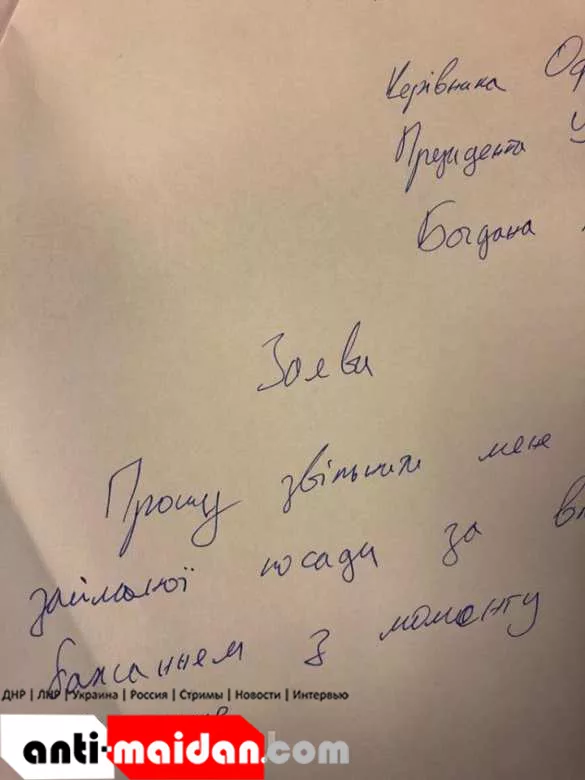 Керівника Оф
Президента У
Богдана
Заява
Прошу звільнити мене
займаної посади за вл
бажанням з моменту
ДНР | ЛНР | Украина | Россия | Стримы | Новости | Интервью
anti-maidan.com